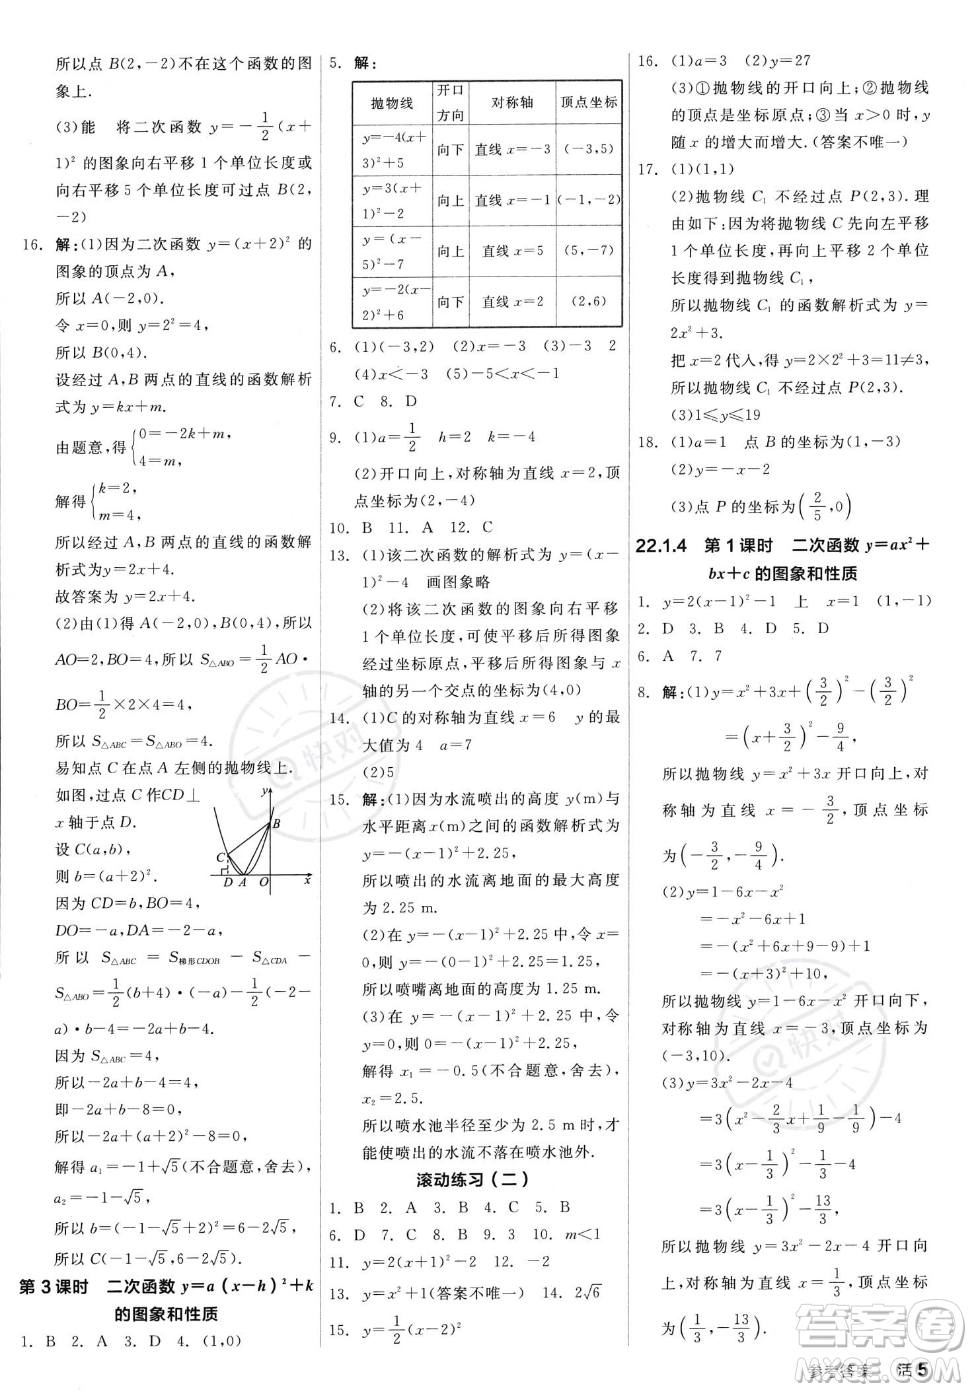 所以点 B(2,-2)不在这个函数的图
象上.
(3)能 将二次函数 y=-1/2(x+
1)² 的图象向右平移 1 个单位长度或
向右平移 5 个单位长度可过点 B(2,
-2)
16. 解:(1)因为二次函数 y=(x+2)² 的
图象的顶点为 A,
所以 A(-2,0).
令 x=0,则 y=2²=4,
所以 B(0,4).
设经过 A,B 两点的直线的函数解析
式为 y=kx+m.
由题意,得{0=-2k+m,
4=m.
解得{k=2,
m=4,
所以经过 A,B 两点的直线的函数解
析式为 y=2x+4.
故答案为 y=2x+4.
(2)由(1)得 A(-2,0),B(0,4),所以
AO=2,BO=4,所以 S△ABO=1/2AO·
BO=1/2×2×4=4.
所以 S△ABC=S△ABO=4.
易知点 C 在点 A 左侧的抛物线上.
如图,过点 C 作CD⊥
x 轴于点 D.
设 C(a,b),
则 b=(a+2)².
因为 CD=b,BO=4,
DO=-a,DA=-2-a,
所以 S△ABC = S梯形CDOB - S△CDA -
S△ABO=1/2(b+4)·(-a)-1/2(-2-
a)·b-4=-2a+b-4.
因为 S△ABC=4,
所以-2a+b-4=4,
即-2a+b=8,
所以-2a+(a+2)²=8.
解得 a₁=-1+√5(不合题意,舍去),
a₂=-1-√5,
所以 b=(-1-√5+2)²=6-2√5,
所以 C(-1-√5,6-2√5).
第 3 课时 二次函数 y=a(x-h)²+k
的图象和性质
1. B 2. A 3. D 4. (1,0)
y
B
C
D A O x
5. 解:
抛物线 开口方向 对称轴 顶点坐标
y=-4(x+3)²+5 向下 直线 x=-3 (-3,5)
y=3(x+1)²-2 向上 直线 x=-1 (-1,-2)
y=(x-5)²-7 向上 直线 x=5 (5,-7)
y=-2(x-2)²+6 向下 直线 x=2 (2,6)
6. (1)(-3,2) (2)x=-3 (3)-3 2
(4)x<-3 (5)-5<x<-3
7. C 8. D
9. (1)a=1/2 h=2 k=-4
(2)开口向上,对称轴为直线 x=2,顶
点坐标为(2,-4)
10. B 11. A 12. C
13. (1)该二次函数的解析式为 y=(x-
1)²-4 画图象略
(2)将该二次函数的图象向右平移
1 个单位长度,可使平移后所得图象
经过坐标原点,平移后所得图象与 x
轴的另一个交点的坐标为(4,0)
14. (1)C 的对称轴为直线 x=6 y 的最
大值为 4 a=7
(2)5
15. 解:(1)因为水流喷出的高度 y(m)与
水平距离 x(m)之间的函数解析式为
y=-(x-1)²+2.25,
所以喷出的水流离地面的最大高度
为 2.25 m.
(2)在 y=-(x-1)²+2.25 中,令 x=0,
得 y=-(0-1)²+2.25=1.25.
所以喷嘴离地面的高度为 1.25 m.
(3)在 y=-(x-1)²+2.25 中,令
y=0,则 0=-(x-1)²+2.25,
解得 x₁=-0.5(不合题意,舍去),
x₂=2.5.
所以喷水池半径至少为 2.5 m 时,才
能使喷出的水流不落在喷水池外.
滚动练习(二)
1. B 2. A 3. B 4. C 5. B
6. D 7. C 8. D 9. 3 10. m<1
11. y=x²+1(答案不唯一) 14. 2√6
15. y=1/2(x-2)²
16. (1)a=3 (2)y=27
(3)①抛物线的开口向上;②抛物线
的顶点是坐标原点;③当 x>0 时,y
随 x 的增大而增大.(答案不唯一)
17. (1)(1,1)
(2)抛物线 C₁ 不经过点 P(2,3).理
由如下:因为抛物线 C 先向左平移
1 个单位长度,再向上平移 2 个单位
长度得到抛物线 C₁,
所以抛物线 C₁ 的函数解析式为 y=
2x²+3.
把 x=2 代入,得 y=2×2²+3=11≠3,
所以抛物线 C₁ 不经过点 P(2,3).
(3)1≤y≤19
18. (1)a=1 点 B 的坐标为(1,-3)
(2)y=-x-2
(3)点 P 的坐标为(2/5,0)
22.1.4 第 1 课时 二次函数 y=ax²+
bx+c 的图象和性质
1. y=2(x-1)²-1 上 x=1 (1,-1)
2. D 3. B 4. D 5. D
6. A 7. 7
8. 解:(1)y=x²+3x+(3/2)²-(3/2)²
=(x+3/2)²-9/4,
所以抛物线 y=x²+3x 开口向上,对
称轴为直线 x=-3/2,顶点坐标
为(-3/2,-9/4).
(2)y=1-6x-x²
=-x²-6x+1
=-(x²+6x+9-9)+1
=-(x+3)²+10,
所以抛物线 y=1-6x-x² 开口向下,
对称轴为直线 x=-3,顶点坐标为
(-3,10).
(3)y=3x²-2x-4
=3(x²-2/3x+1/9-1/9)-4
=3(x-1/3)²-1/3-4
=3(x-1/3)²-13/3,
所以抛物线 y=3x²-2x-4 开口向
上,对称轴为直线 x=1/3,顶点坐标
为(1/3,-13/3).
快对
快对
答案圈
参考答案 活 5